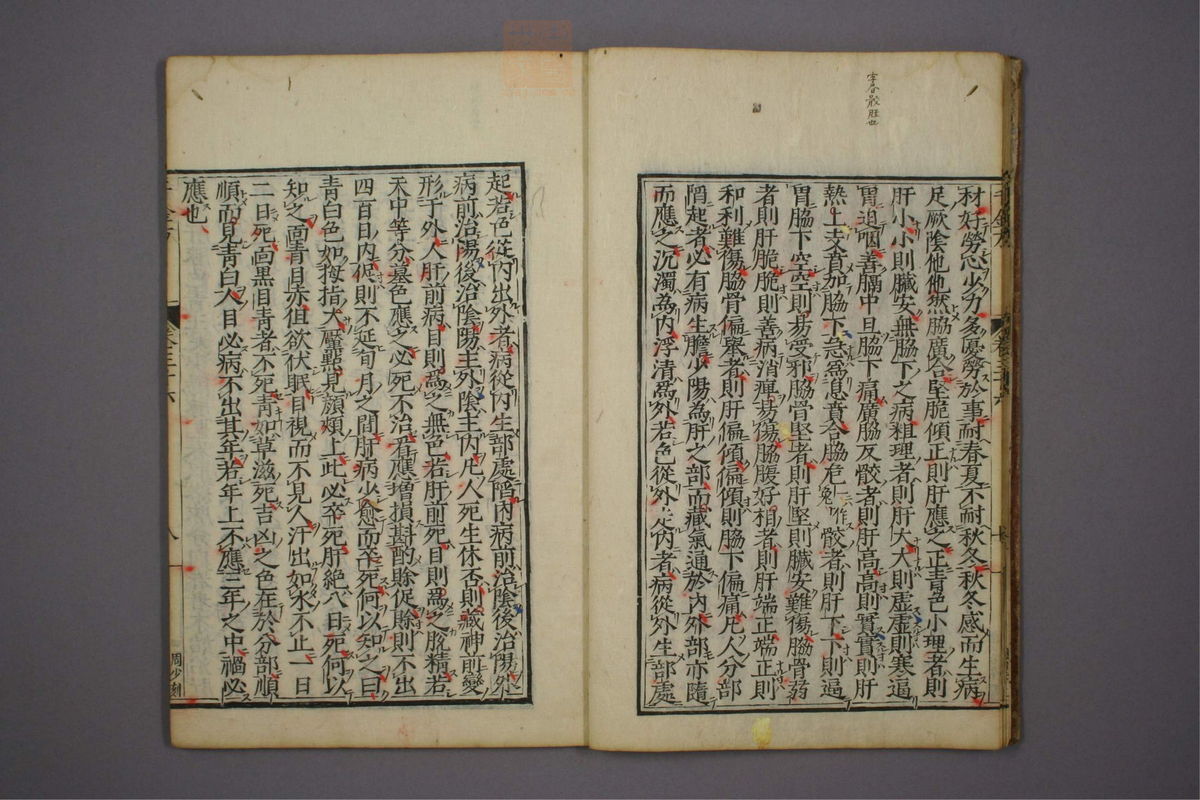 材好勞心少力多憂勞於事耐春夏不耐秋冬秋冬感而生病
足厥陰他他然脇廣合堅脆傾正則肝應之正青色小理者則
肝小小則臟安無脇下之病粗理者則肝大大則虛虛則寒逼
胃迫咽善膈中且脇下痛廣脇反骹者則肝高高則實實則肝
熱上支賁加脇下急為息賁合脇危一作兔骹者則肝下下則逼
胃脇下空空則易受邪脇骨堅者則肝堅則臟安難傷脇骨弱
者則肝脆脆則善病消癉易傷脇腹好相者則肝端正端正則
和利難傷脇骨偏舉者則肝偏傾偏傾則脇下偏痛凡人分部
陷起者必有病生膽少陽為肝之部而藏氣通於內外部亦隨
而應之沉濁為內浮清為外若色從外走內者病從外生部處
起若色從內出外者病從內生部處陷內病前治陰後治陽外
病前治陽後治陰陽主外陰主內凡人死生休否則藏神前變
形于外人肝前病目則為之無色若肝前死目則為之脫精若
天中等分墓色應之必死不治看應增損斟酌賒促賒則不出
四百日內促則不延旬月之間肝病少愈而卒死何以知之曰
青白色如拇指大黶點見顏頰上此必卒死肝絕八日死何以
知之面青目赤但欲伏眠目視而不見人汗出如水不止一曰
二日死面黑目青者不死青如草滋死吉凶之色在於分部順
順而見青白入目必病不出其年若年上不應三年之中禍必
應也
卷三十六
八
周少刻